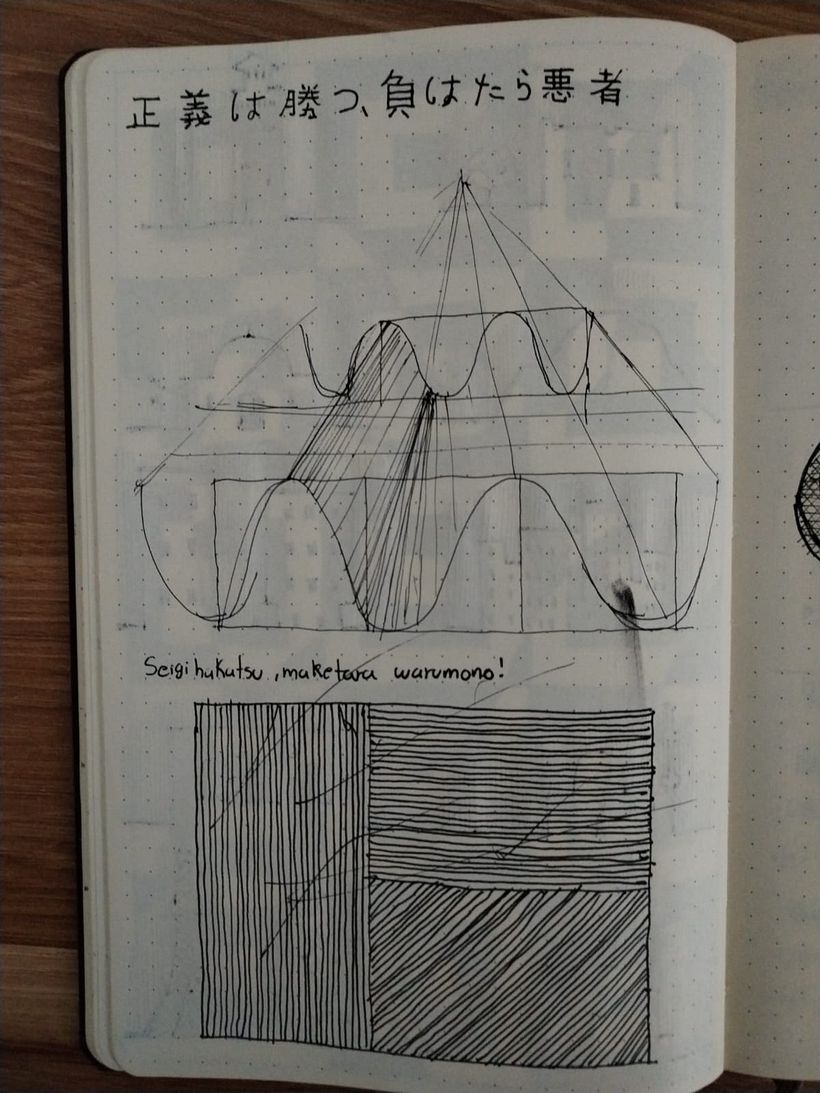 正義は勝つ、負はたら悪者
Seigi hakatsu, maketara warumono!